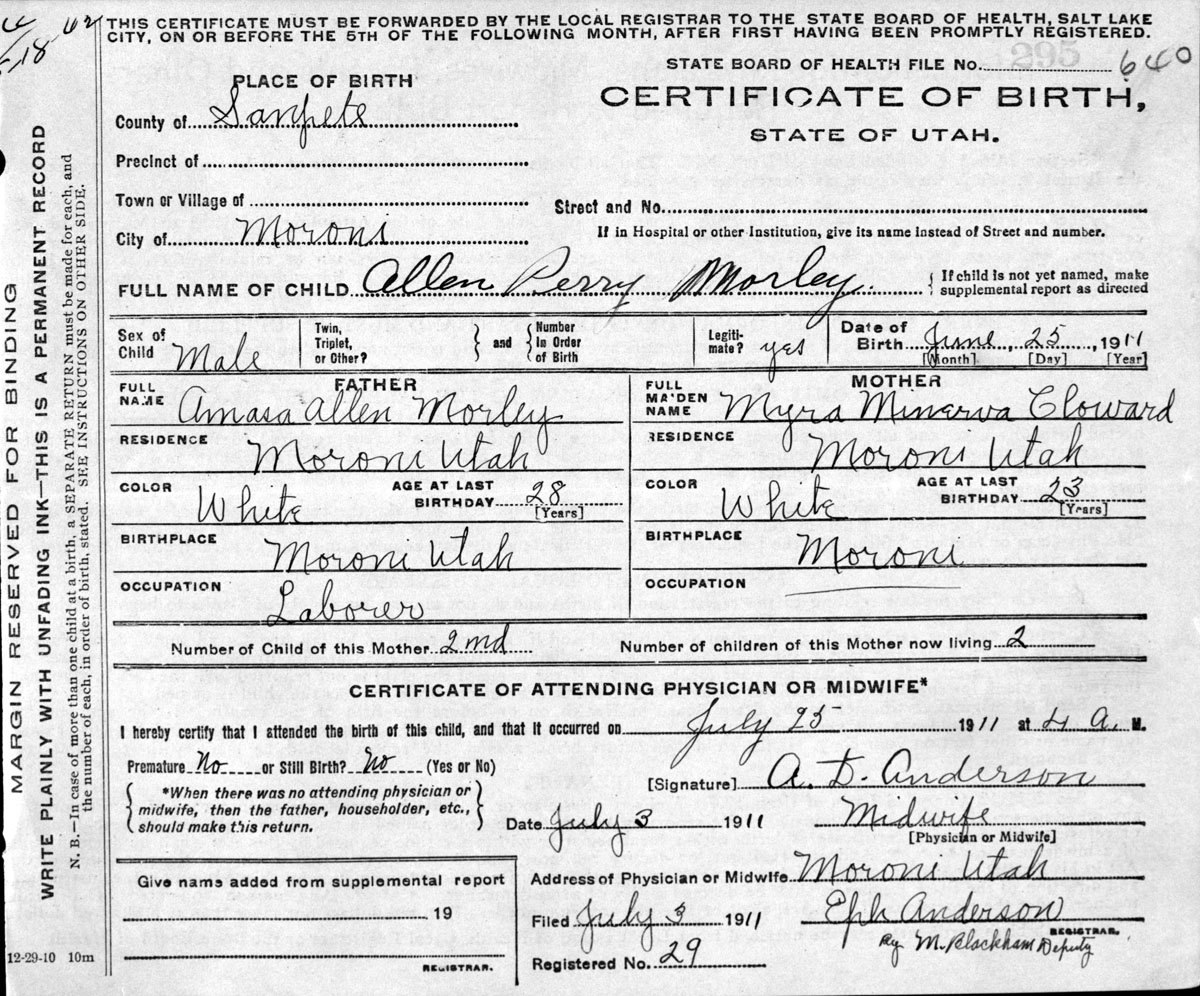 THIS CERTIFICATE MUST BE FORWARDED BY THE LOCAL REGISTRAR TO THE STATE BOARD OF HEALTH, SALT LAKE
CITY, ON OR BEFORE THE 5TH OF THE FOLLOWING MONTH, AFTER FIRST HAVING BEEN PROMPTLY REGISTERED.
STATE BOARD OF HEALTH FILE No. 640
PLACE OF BIRTH
CERTIFICATE OF BIRTH,
STATE OF UTAH.
County of Sanpete
Precinct of
Town or Village of
Street and No.
City of Moroni
If in Hospital or other Institution, give its name instead of Street and number.
FULL NAME OF CHILD Allen Perry Morley { If child is not yet named, make
supplemental report as directed
Sex of Child Male
Twin, Triplet, or Other?
{ and }
{ Number In Order of Birth
Legiti-mate? yes
Date of Birth June, 25, 1911
[Month] [Day] [Year]
FATHER
FULL NAME Amasa Allen Morley
RESIDENCE Moroni Utah
COLOR White
AGE AT LAST BIRTHDAY 28
[Years]
BIRTHPLACE Moroni Utah
OCCUPATION Laborer
MOTHER
FULL MAIDEN NAME Myra Minerva Cloward
RESIDENCE Moroni Utah
COLOR White
AGE AT LAST BIRTHDAY 23
[Years]
BIRTHPLACE Moroni
OCCUPATION
Number of Child of this Mother 2nd
Number of children of this Mother now living 2
CERTIFICATE OF ATTENDING PHYSICIAN OR MIDWIFE*
I hereby certify that I attended the birth of this child, and that it occurred on July 25 1911 at 4 A. M.
Premature No or Still Birth? No (Yes or No)
[Signature] A. D. Anderson
{ *When there was no attending physician or
midwife, then the father, householder, etc.,
should make this return. }
Date July 3 1911
Midwife
[Physician or Midwife]
Address of Physician or Midwife Moroni Utah
Give name added from supplemental report
19
REGISTRAR.
Filed July 3 1911
Eph Anderson
REGISTRAR.
By M. Blackham Deputy
Registered No. 29
12-29-10 10m
MARGIN RESERVED FOR BINDING
WRITE PLAINLY WITH UNFADING INK—THIS IS A PERMANENT RECORD
N. B.—In case of more than one child at a birth, a SEPARATE RETURN must be made for each, and
the number of each, in order of birth, stated. SEE INSTRUCTIONS ON OTHER SIDE.